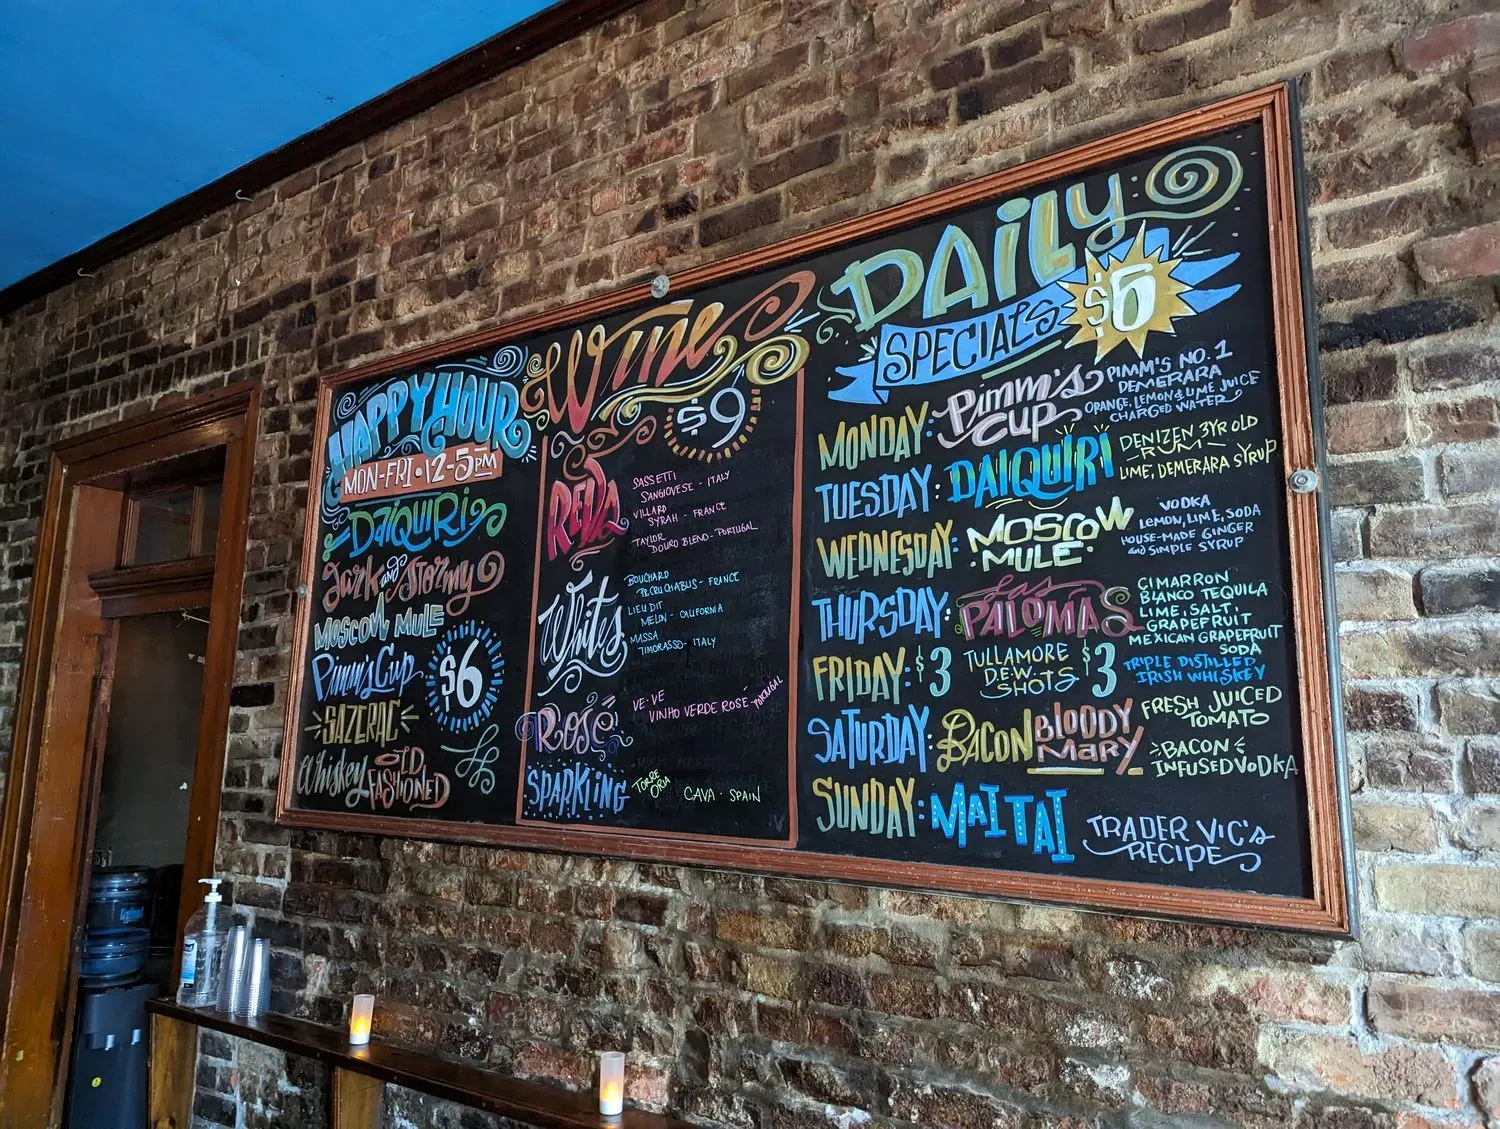 HAPPY HOUR
MON-FRI • 12-5PM
DAIQUIRI
Dark and Stormy
MOSCOW MULE
Pimm's Cup
$6
SAZERAC
Whiskey OLD
FASHIONED
Wine
$9
REDS
SASSETTI
SANGIOVESE - ITALY
VILLARD
SYRAH - FRANCE
TAYLOR
DOURO BLEND - PORTUGAL
Whites
BOUCHARD
FRANCE
LIEU DIT
MELON - CALIFORNIA
MASSA
TIMORASSO - ITALY
ROSÉ
VE-VE
VINHO VERDE ROSÉ - PORTUGAL
SPARKLING
TORRE
ORIA
CAVA - SPAIN
DAILY
SPECIALS $6
MONDAY: Pimm's
CUP
PIMM'S NO. 1
DEMERARA
ORANGE, LEMON & LIME JUICE
CHARGED WATER
TUESDAY: DAIQUIRI
DENIZEN 3YR OLD
RUM
LIME, DEMERARA SYRUP
WEDNESDAY: MOSCOW
MULE
VODKA
LEMON, LIME, SODA
HOUSE-MADE GINGER
and SIMPLE SYRUP
THURSDAY: Las
PALOMAS
CIMARRON
BLANCO TEQUILA
LIME, SALT,
GRAPEFRUIT
MEXICAN GRAPEFRUIT
SODA
FRIDAY: $3 TULLAMORE
D.E.W.
SHOTS $3
TRIPLE DISTILLED
IRISH WHISKEY
SATURDAY: BACON BLOODY
MARY
FRESH JUICED
TOMATO
BACON
INFUSED VODKA
SUNDAY: MAI TAI
TRADER VIC'S
RECIPE